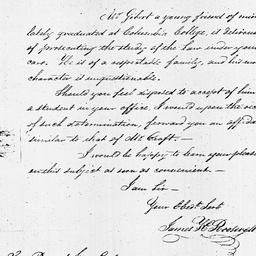 Mr Gibert a young friend of min
lately graduated at Columbia College, is desirous
of prosecuting the study of the Law under your
care. He is of a respectable family, and his mo
character is unquestionable.
Should you feel disposed to accept of him
a student in your office, I would upon the rec
of such determination, forward you an affida
similar to that of Mr Craft.
I would be happy to learn your pleas
on this subject as soon as convenient
I am Sir
Your Obedt Servt
James H Roosevelt